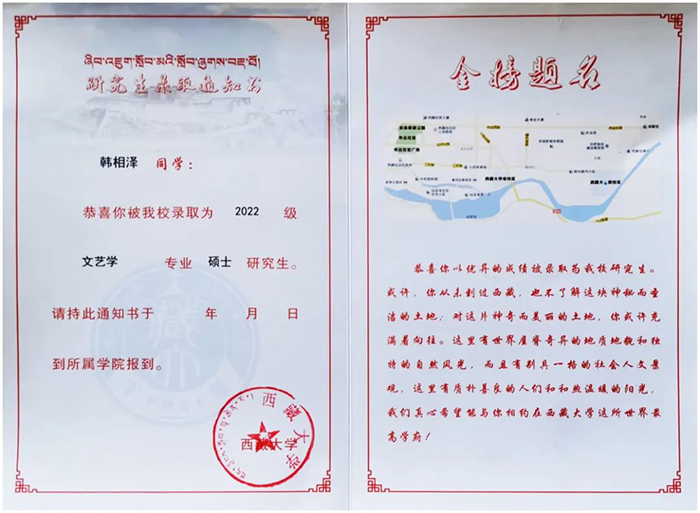 ཞིབ་འཇུག་སློབ་མའི་སློབ་ཞུགས་བརྡ་ཐོ།
研究生录取通知书
韩相泽 同学：
恭喜你被我校录取为 2022 级
文艺学 专业 硕士 研究生。
请持此通知书于 年 月 日
到所属学院报到。
西藏大学
西藏大学
金榜题名
恭喜你以优异的成绩被录取为我校研究生。
或许，你从未到过西藏，也不了解这块神秘而圣
洁的土地；对这片神奇而美丽的土地，你或许充
满着向往。这里有世界屋脊奇异的地质地貌和独
特的自然风光，而且有别具一格的社会人文景
观，这里有质朴善良的人们和和煦温暖的阳光，
我们真心希望能与你相约在西藏大学这所世界最
高学府！